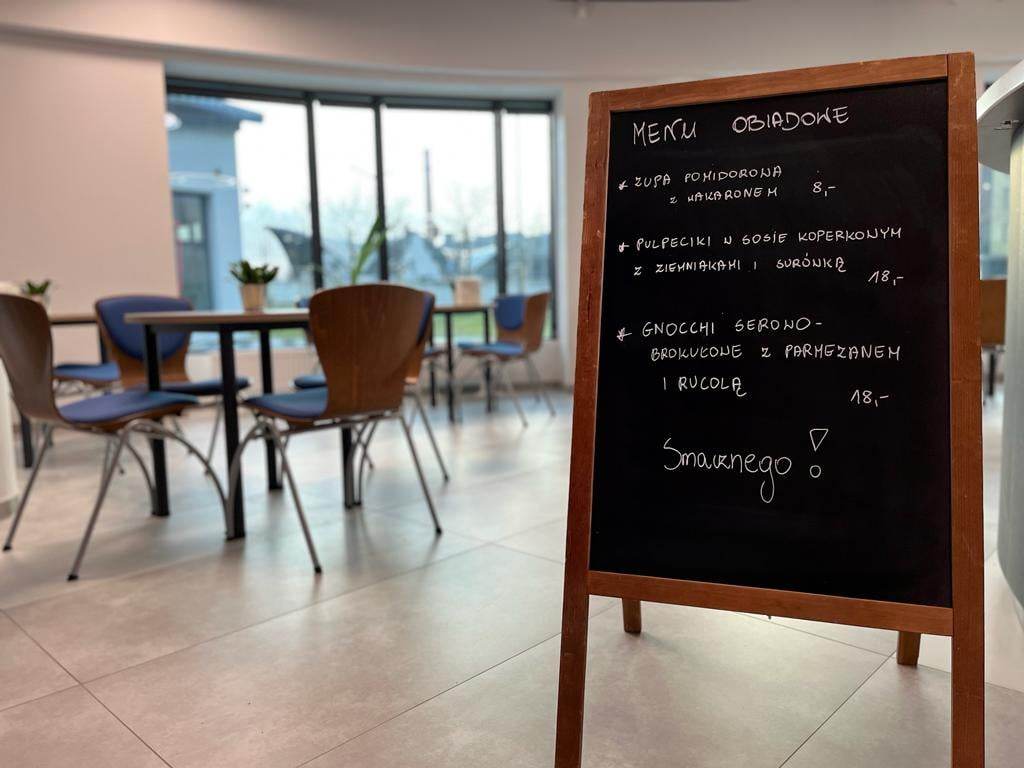 MENU OBIADOWE
* ZUPA POMIDOROWA
Z MAKARONEM 8,-
* PULPECIKI W SOSIE KOPERKOWYM
Z ZIEMNIAKAMI I SURÓWKĄ
18,-
* GNOCCHI SEROWO-
BROKUŁOWE Z PARMEZANEM
I RUCOLĄ
18,-
Smacznego!